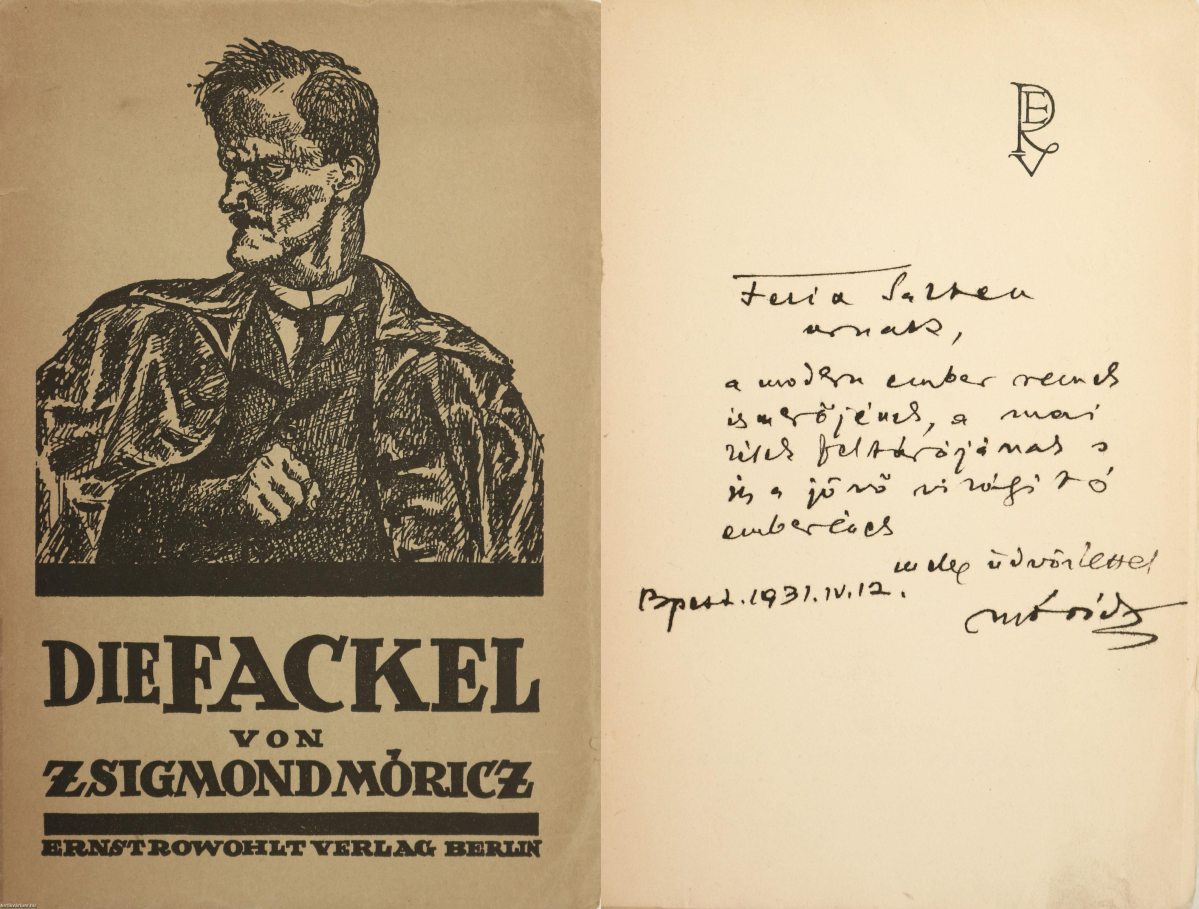 DIE FACKEL
VON
ZSIGMOND MÓRICZ
ERNST ROWOHLT VERLAG BERLIN
Felix Salten
urnak,
a modern ember remek
ismerőjének, a mai
lélek feltárójának s
és a jövő világító
emberének
meleg üdvözlettel
Bpest. 1931. IV. 12.
Móricz
antikvarium.hu